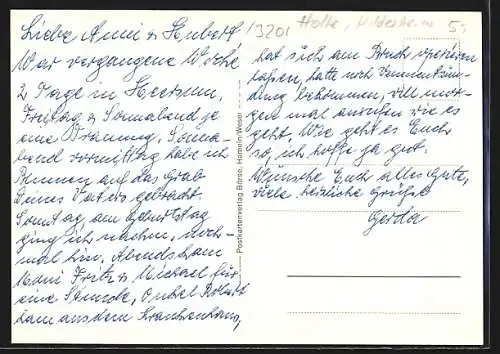 Liebe Anni u. Hubert
War vergangene Woche
2 Tage in Heersum,
Freitag u. Sonnabend je
eine Trauung, Sonna-
bend vormittag habe ich
Blumen auf das Grab
Deines Vaters gebracht.
Sonntag, am Geburtstag
ging ich nachm. noch-
mal hin. Abends kam
Mani Fritz u. Michael für
eine Stunde, Onkel Robert
kam aus dem Krankenhaus,
Postkartenverlag Börse, Hameln/Weser
13201 Holle, Hildesheim 5,-
hat sich am Bruch operieren
lassen, hatte noch
dung bekommen, will mor-
gen mal anrufen wie es
geht. Wie geht es Euch
so, ich hoffe ja gut.
Wünsche Euch alles Gute,
viele herzliche Grüße
Gerda